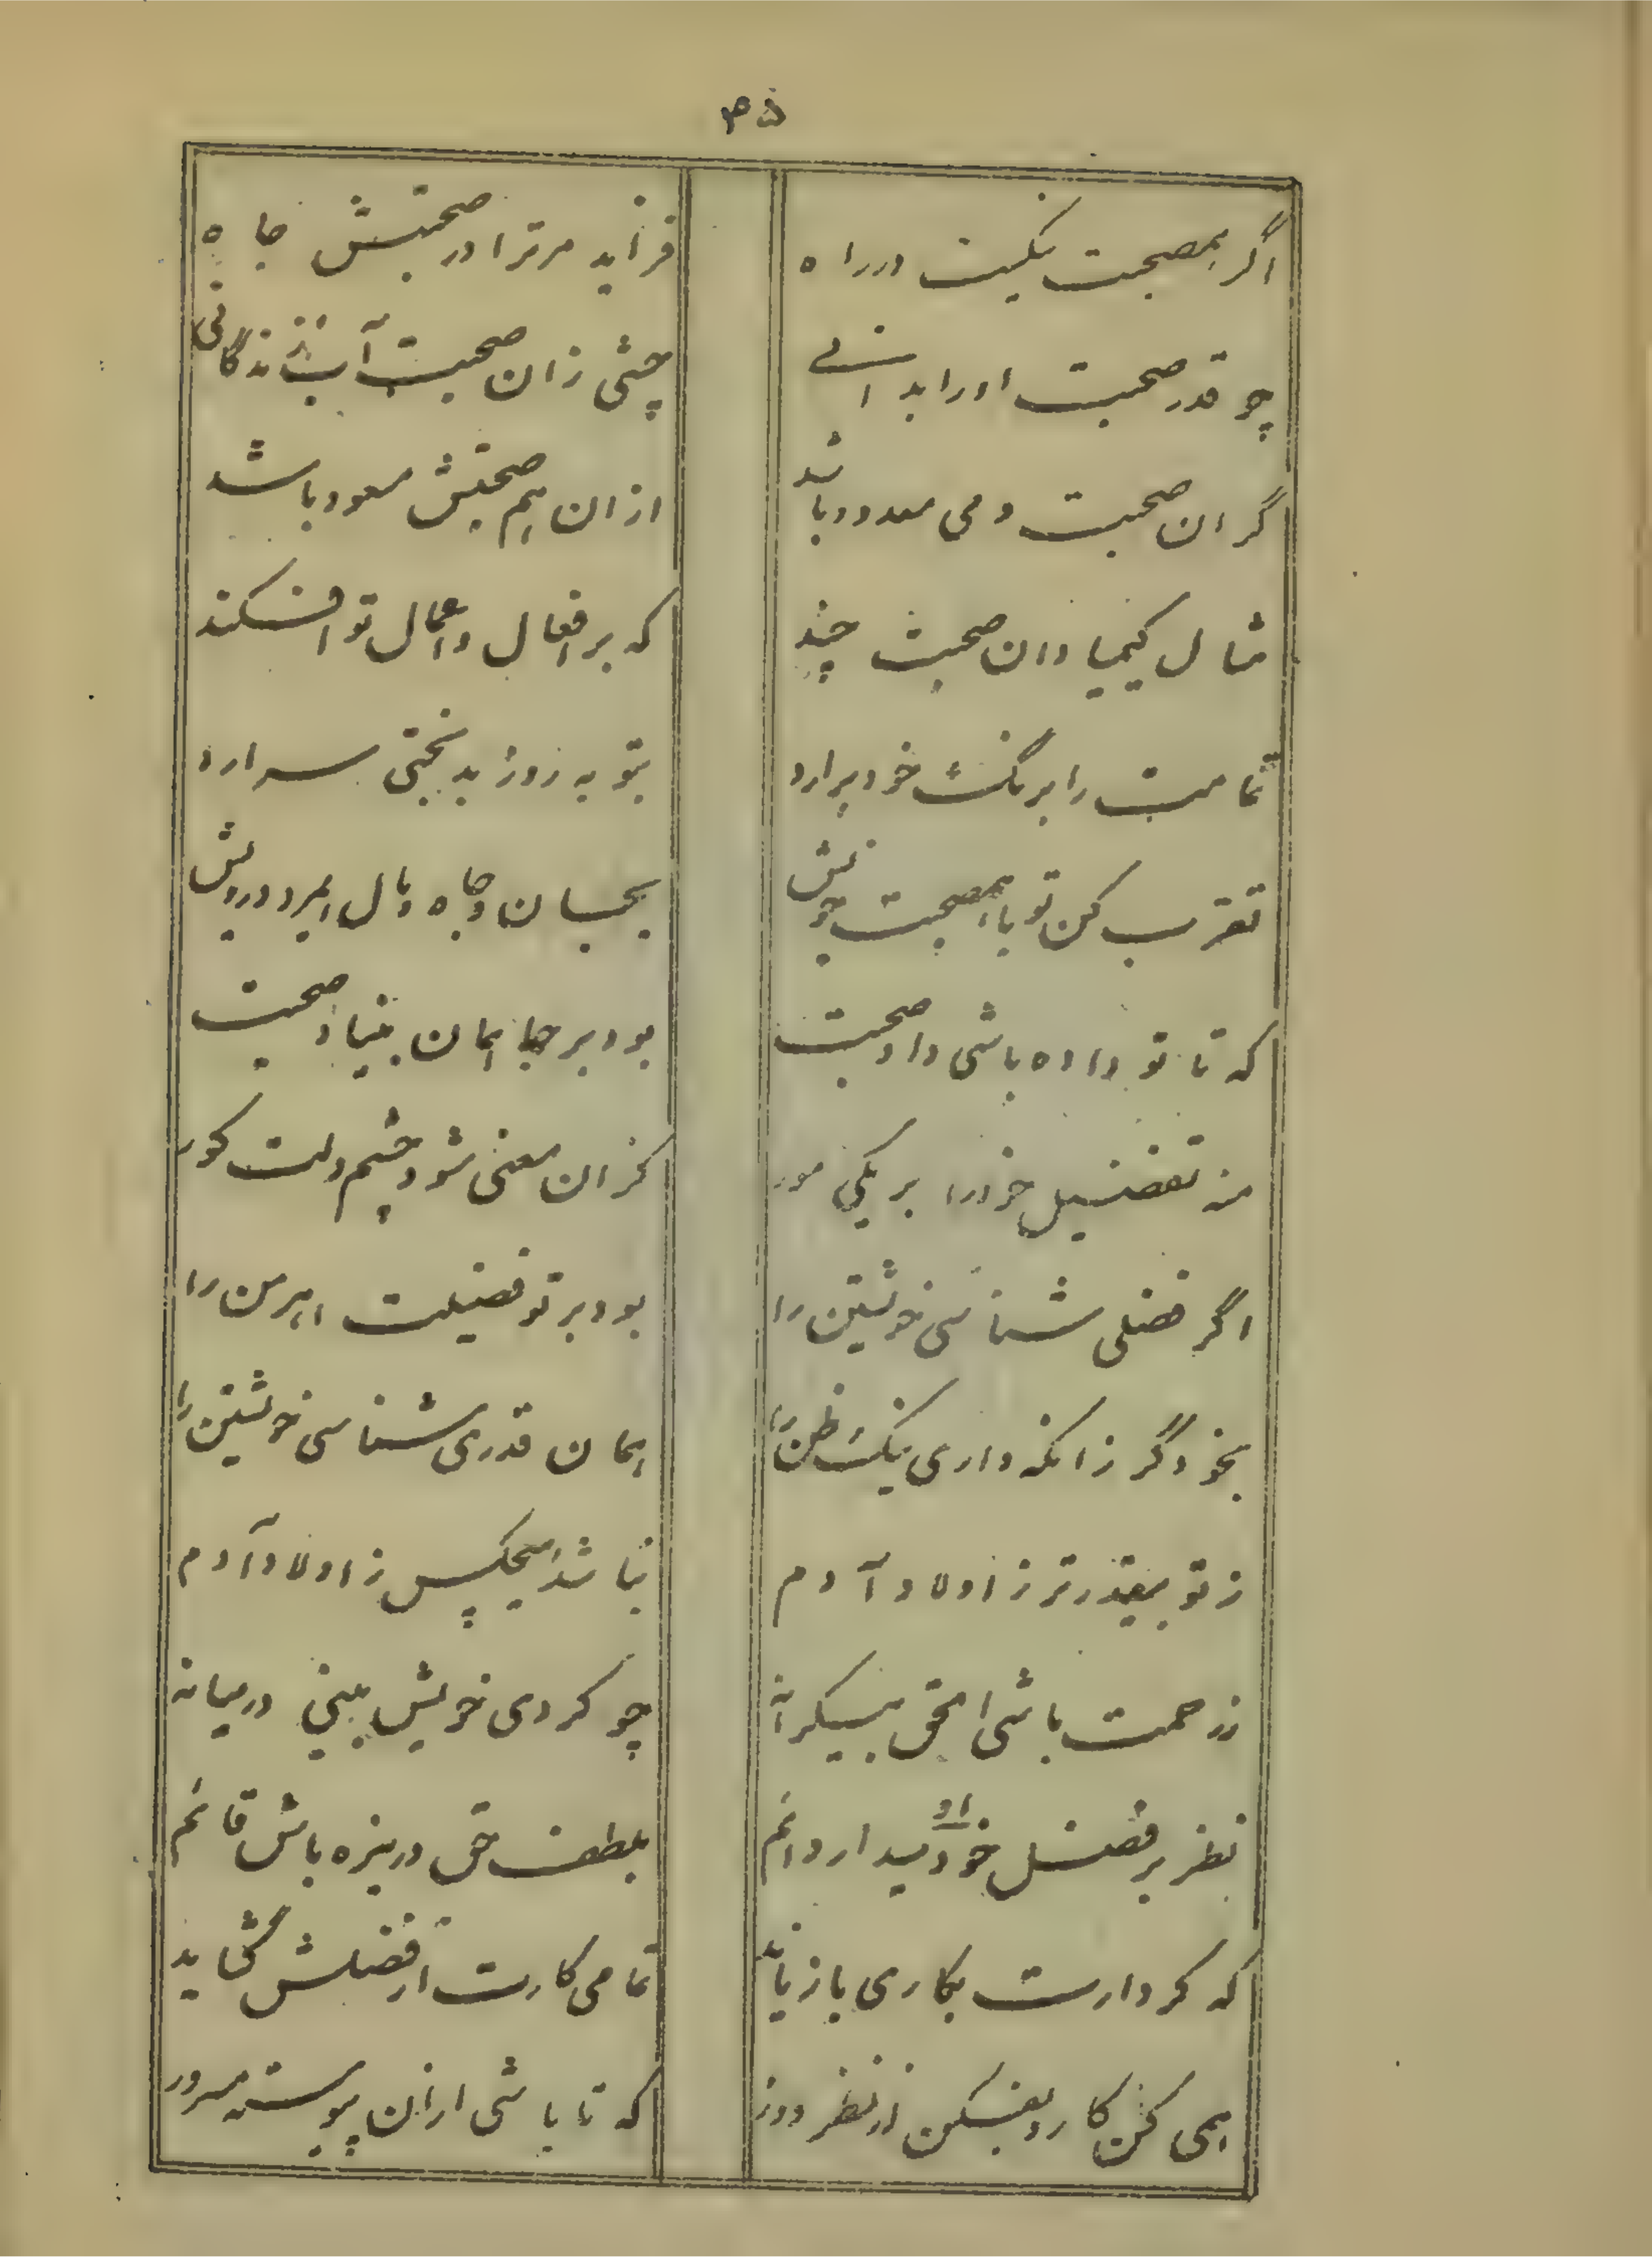 ۴۵
اگر بمصحبت نیکیت در راه فزاید مر ترا در صحبتش جاه
چو قدر صحبت او را بدانی چشی زان صحبت آب زندگانی
گر ان صحبت دمی معدود باشد ازان هم صحبتش مسعود باشد
مثال کیمیا دان صحبت چند که بر افعال و اعمال تو افکند
تمامت را برنگ خود برارد بتو به روز بدبختی سرارد
تقرب کن تو با همصحبت خویش بحسبان و جاه و مال ایمرد درویش
که تا تو داده باشی داد صحبت بود بر جا همان بنیاد صحبت
منه تفضیل خود را بر یکی مور کزان معنی شود چشم دلت کور
اگر فضلی شناسی خویشتن را بود بر تو فضیلت اهرمن را
بخود گر زانکه داری نیک ظن را همان قدری شناسی خویشتن را
ز تو بیقدرتر ز اولاد آدم نباشد هیچکس ز اولاد آدم
ز رحمت باشی احمق بیکرانه چو کردی خویش بینی درمیانه
نظر بر فضل او میدار دائم بلطف حق دریزه باش قائم
که کردارت بکاری باز ناید تمامی کارت از فضلش گشاید
همی کن کار و بفکن از نظر دور که تا باشی ازان پیوسته مسرور